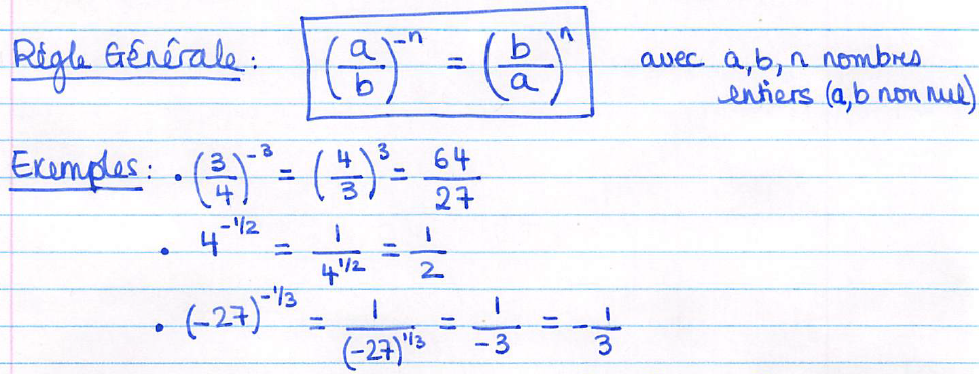 Règle Générale : (a/b)^-n = (b/a)^n avec a, b, n nombres
entiers (a, b non nul)
Exemples : • (3/4)^-3 = (4/3)^3 = 64/27
• 4^-1/2 = 1/4^1/2 = 1/2
• (-27)^-1/3 = 1/(-27)^1/3 = 1/-3 = -1/3